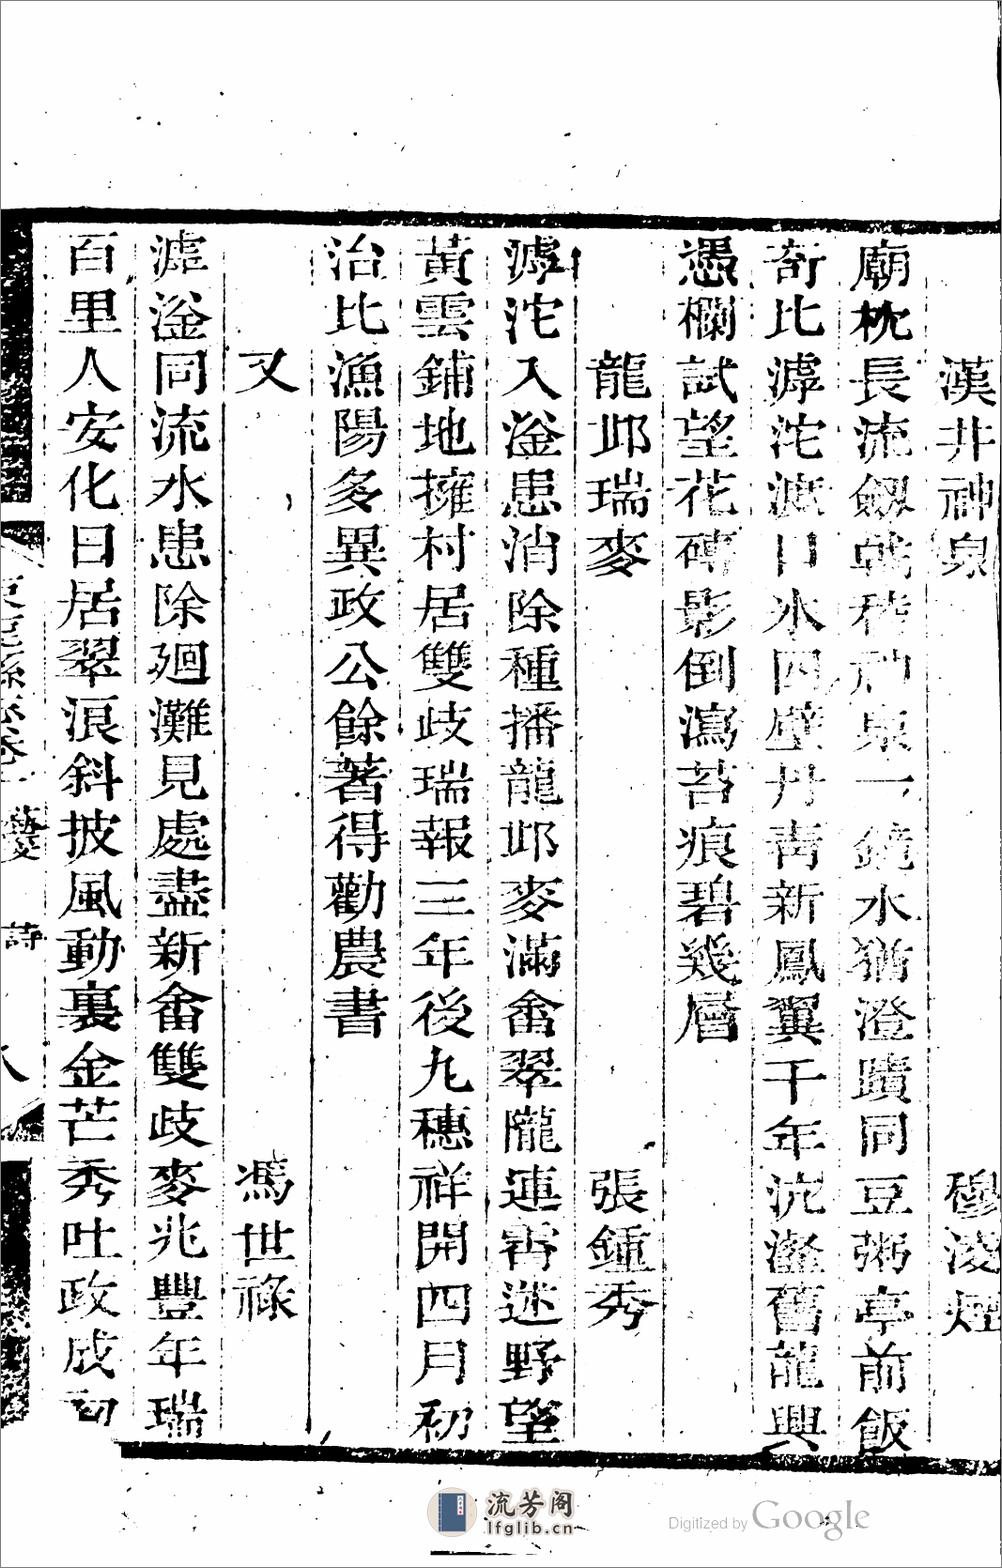 漢井神泉　穆凌煙
廟枕長流劔戟稜神泉一鏡水猶澄蹟同豆粥亭前飯
奇比滹沱渡口冰四壁丹青新鳳翼千年沆瀣舊龍興
憑欄試望花磚影倒瀉苔痕碧幾層
龍邱瑞麥　張鍾秀
滹沱入滏患消除種播龍邱麥滿畬翠隴連霄迷野望
黃雲鋪地擁村居雙歧瑞報三年後九穗祥開四月初
治比漁陽多異政公餘著得勸農書
又　馮世祿
滹滏同流水患除廻灘見處盡新畬雙歧麥兆豐年瑞
百里人安化日居翠浪斜披風動裏金芒秀吐政成初
縣志卷 藝文 詩 八
流芳阁
lfglib.cn
Digitized by Google